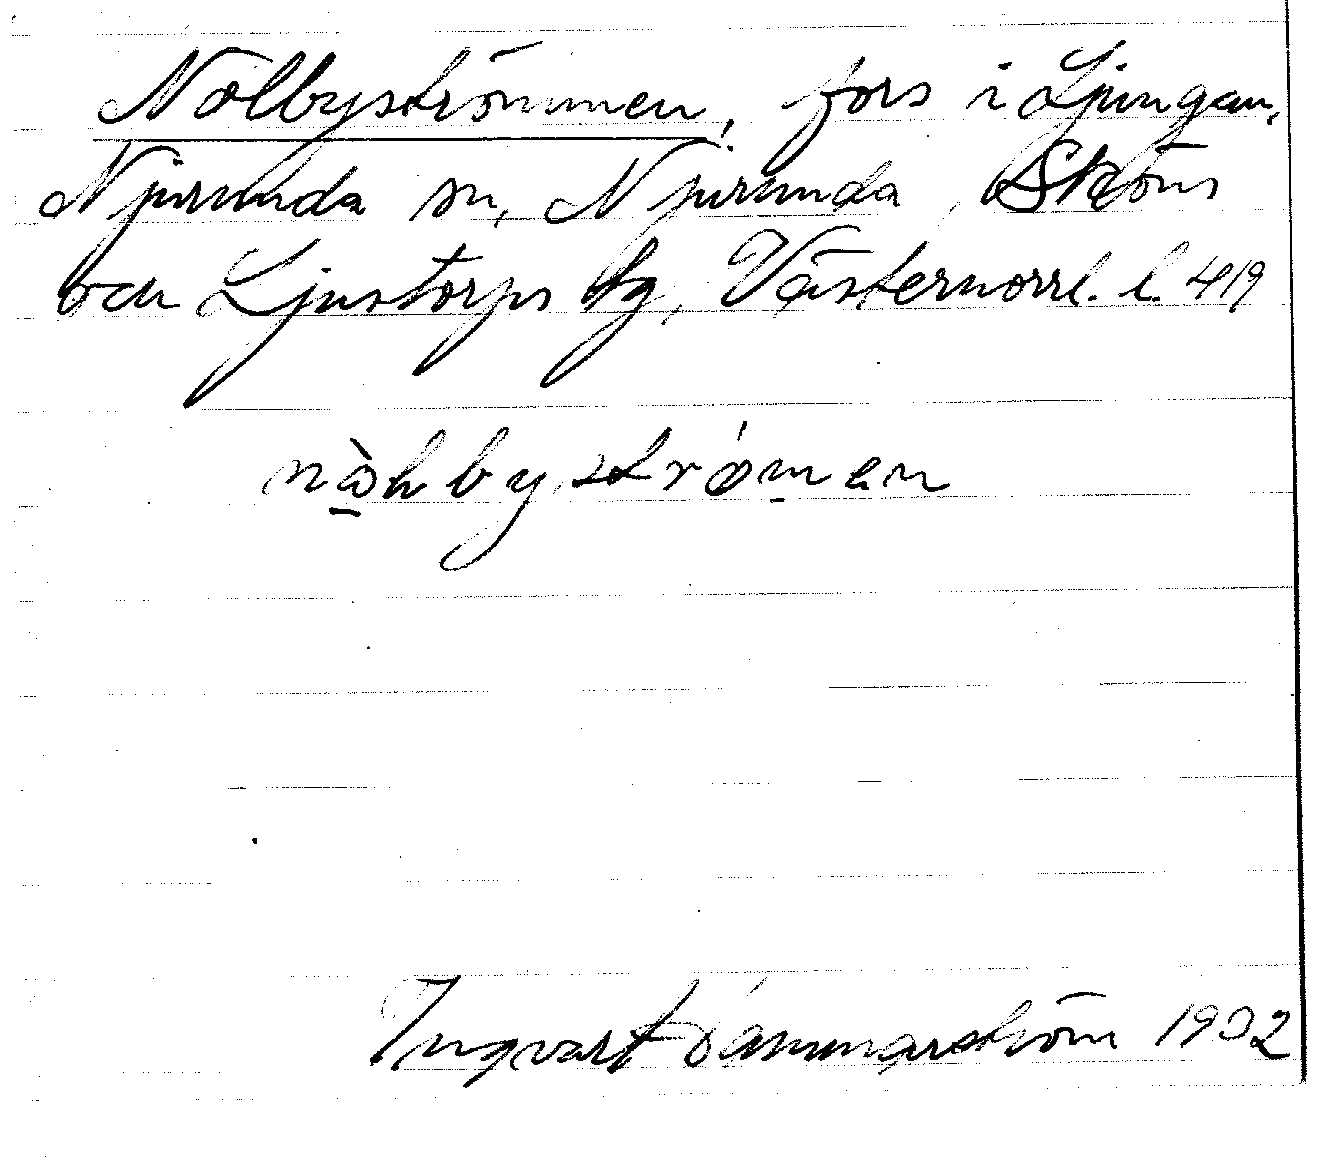 Nolbyströmmen, fors i Ljungan,
Njurunda sn, Njurunda, Sköns
och Ljustorps tg, Västernorrl. l. 419
nòlbystrǿmen
Ingvart Dammarström 1932